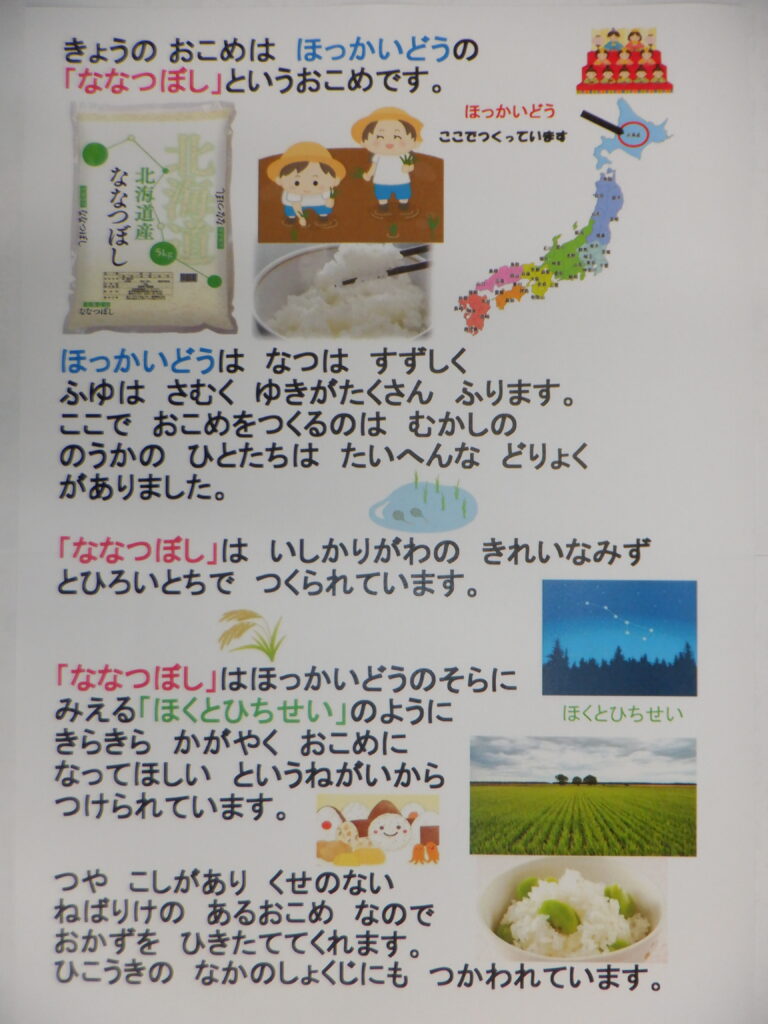 きょうの おこめは ほっかいどうの
「ななつぼし」というおこめです。
ほっかいどう
ここでつくっています
北海道
北海道産
ななつぼし
5kg
ななつぼし
ほっかいどうは なつは すずしく
ふゆは さむく ゆきがたくさん ふります。
ここで おこめをつくるのは むかしの
のうかの ひとたちは たいへんな どりょく
がありました。
「ななつぼし」は いしかりがわの きれいなみず
とひろいとちで つくられています。
「ななつぼし」はほっかいどうのそらに
みえる「ほくとひちせい」のように
きらきら かがやく おこめに
なってほしい というねがいから
つけられています。
ほくとひちせい
つや こしがあり くせのない
ねばりけの あるおこめ なので
おかずを ひきたててくれます。
ひこうきの なかのしょくじにも つかわれています。